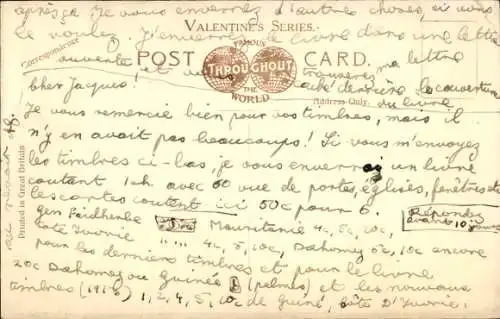 après ça je vous enverrez d'autres choses, si vous
le voulez. J'enverrez le livre dans une lettre
VALENTINE'S SERIES.
ouverte, et vous trouverez ma lettre
derrière la couverture
du livre
Correspondence
POST CARD.
FAMOUS
THROUGHOUT
THE
WORLD
Address Only.
Cher Jacques!
Je vous remercie bien pour vos timbres, mais il
n'y en avait pas beaucoups! Si vous m'envoyez
les timbres ci-bas, je vous enverrai un livre
coutant 1sh avec 60 vue de portes, églises, fenêtres etc
les cartes coutent ici 50c pour 6.
Répondez
avant 10 jours
gen Faidherbe Mauritanie 4c, 5c, 10c,
Côte Ivorie " .... 4c, 5, 10c, Dahomey 5c, 10c encore
pour les derniers timbres et pour le livre
20c Dahomey ou Guinée (palmes) et les nouveaux
timbres (1913) 1, 2, 4, 5, 10c de Guiné, Côte D'Ivorie.
au revoir
Printed in Great Britain